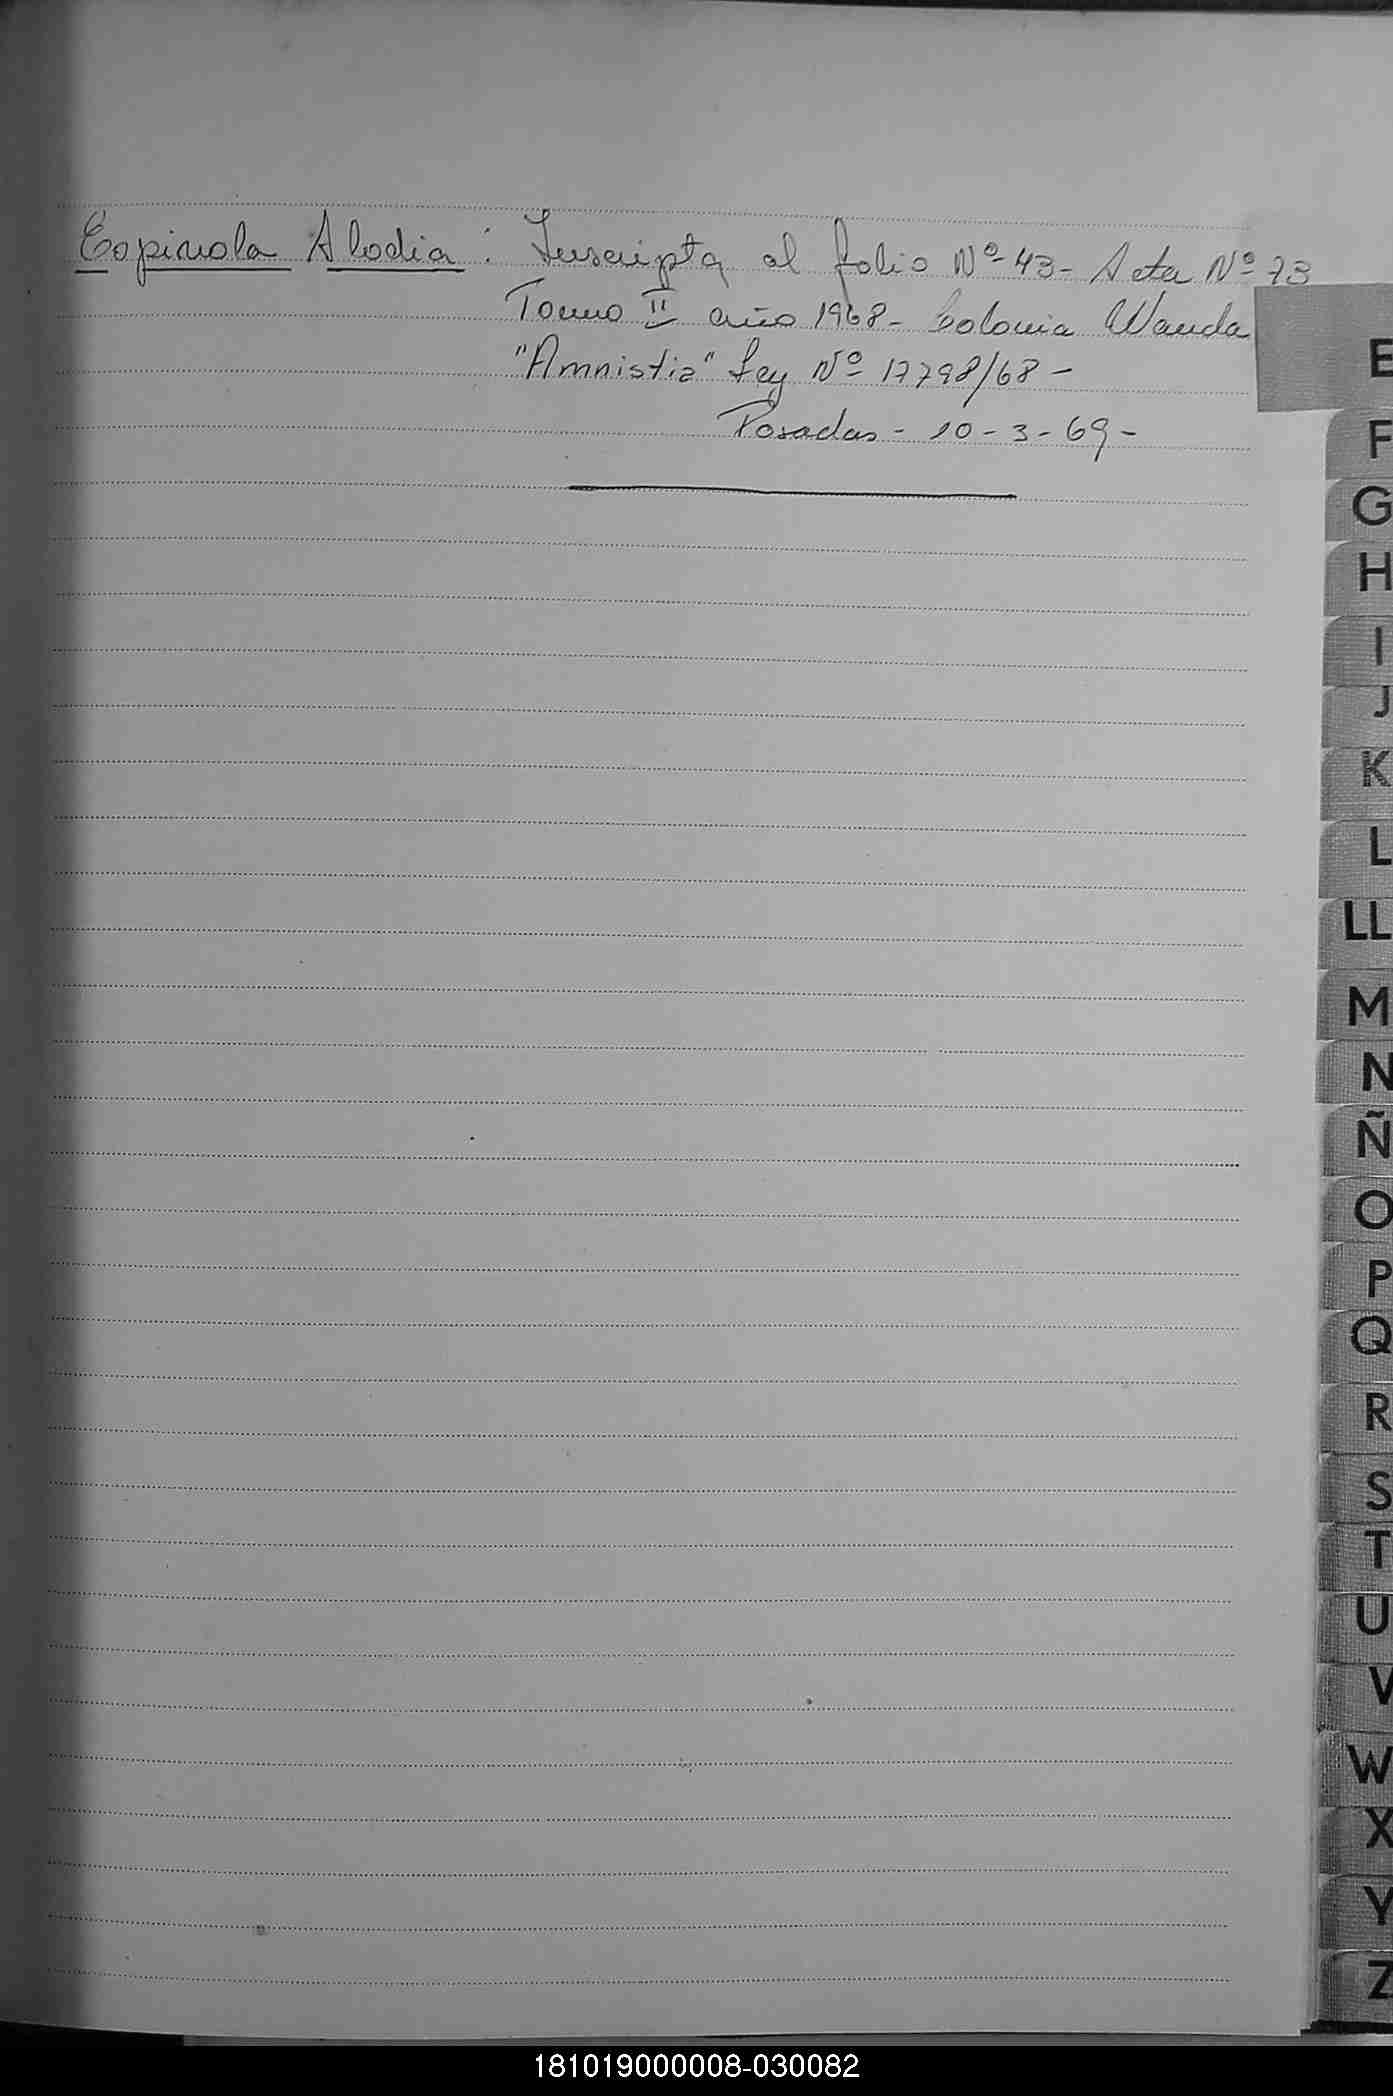 Espinola Alodia: Inscripta al folio Nº 43- Acta Nº 73
Tomo II año 1968- Colonia Wanda
"Amnistia" Ley Nº 17798/68-
Posadas- 10-3-69-
E
F
G
H
I
J
K
L
LL
M
N
Ñ
O
P
Q
R
S
T
U
V
W
X
Y
Z
181019000008-030082